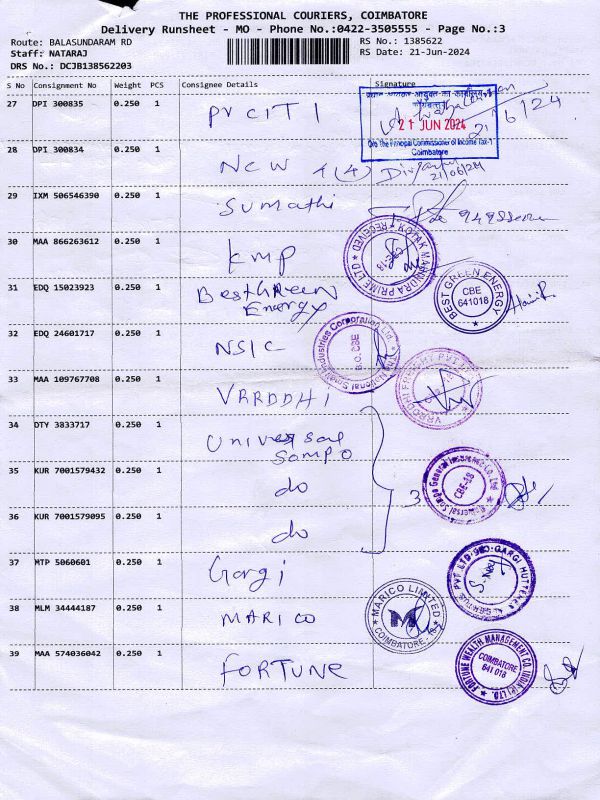 THE PROFESSIONAL COURIERS, COIMBATORE
Delivery Runsheet - MO - Phone No.:0422-3505555 - Page No.:3
Route: BALASUNDARAM RD
RS No.: 1385622
Staff: NATARAJ
RS Date: 21-Jun-2024
DRS No.: DCJB138562203
S No Consignment No Weight PCS Consignee Details Signature
27 DPI 300835 0.250 1 PV CIT 1
21 JUN 2024
O/o The Principal Commissioner of Income Tax-1
Coimbatore
21/6/24
28 DPI 300834 0.250 1 NCW 4(4)
21/06/24
29 IXM 506546390 0.250 1 Sumathi
30 MAA 866263612 0.250 1 KMP
KOTAK MAHINDRA PRIME LTD ★ RECEIVED
31 EDQ 15023923 0.250 1 Best Green
Energy
BEST GREEN ENERGY
CBE
641018
32 EDQ 24601717 0.250 1 NSIC
The National Small Industries Corporation Ltd.
B.O. CBE
33 MAA 109767708 0.250 1 VRRDDHI
34 DTY 3833717 0.250 1 Universal
Sompo
35 KUR 7001579432 0.250 1 do
3
Universal Sompo General Insurance Co. Ltd
CBE-18
36 KUR 7001579095 0.250 1 do
37 MTP 5060601 0.250 1 Gargi
38 MLM 34444187 0.250 1 MARICO
MARICO LIMITED
M
39 MAA 574036042 0.250 1 FORTUNE
FORTUNE WEALTH MANAGEMENT CO. INDIA (P) LTD.
COIMBATORE
641 018